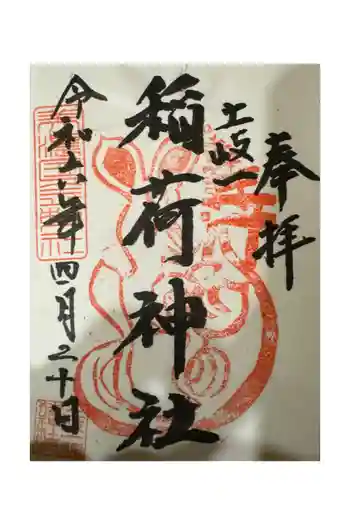 奉拝
土岐一
稲荷神社
令和六年四月二十日